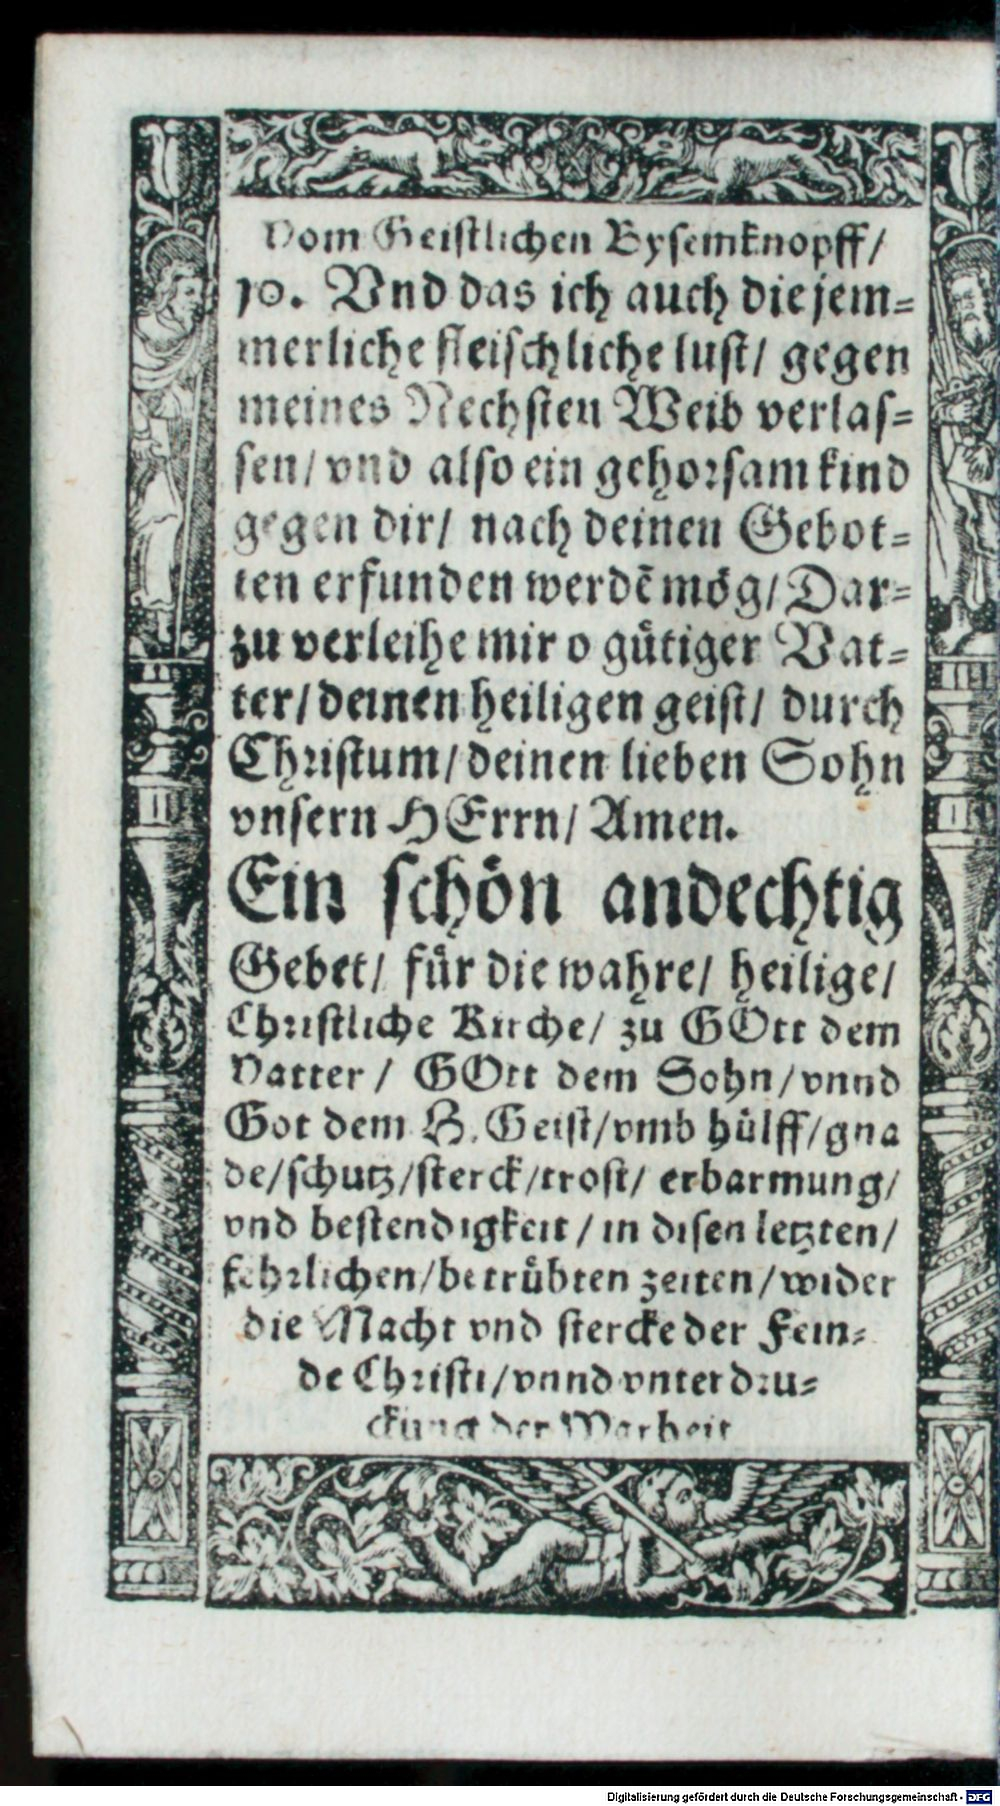 Vom Geistlichen Bysemknopff/
10. Vnd das ich auch die jem=
merliche fleischliche lust/ gegen
meines Nechsten Weib verlas=
sen/ vnd also ein gehorsam kind
gegen dir/ nach deinen Gebot=
ten erfunden werdẽ mög/ Dar=
zu verleihe mir o gütiger Vat=
ter/ deinen heiligen geist/ durch
Christum/ deinen lieben Sohn
vnsern HErrn/ Amen.
Ein schön andechtig
Gebet/ für die wahre/ heilige/
Christliche Kirche/ zu GOtt dem
Vatter/ GOtt dem Sohn/ vnnd
Got dem H. Geist/ vmb hülff/ gna
de/ schutz/ sterck/ trost/ erbarmung/
vnd bestendigkeit/ in disen letzten/
fehrlichen/ betrübten zeiten/ wider
die Macht vnd stercke der Fein=
de Christi/ vnnd vnterdru=
ckung der Warheit
Digitalisierung gefördert durch die Deutsche Forschungsgemeinschaft - DFG